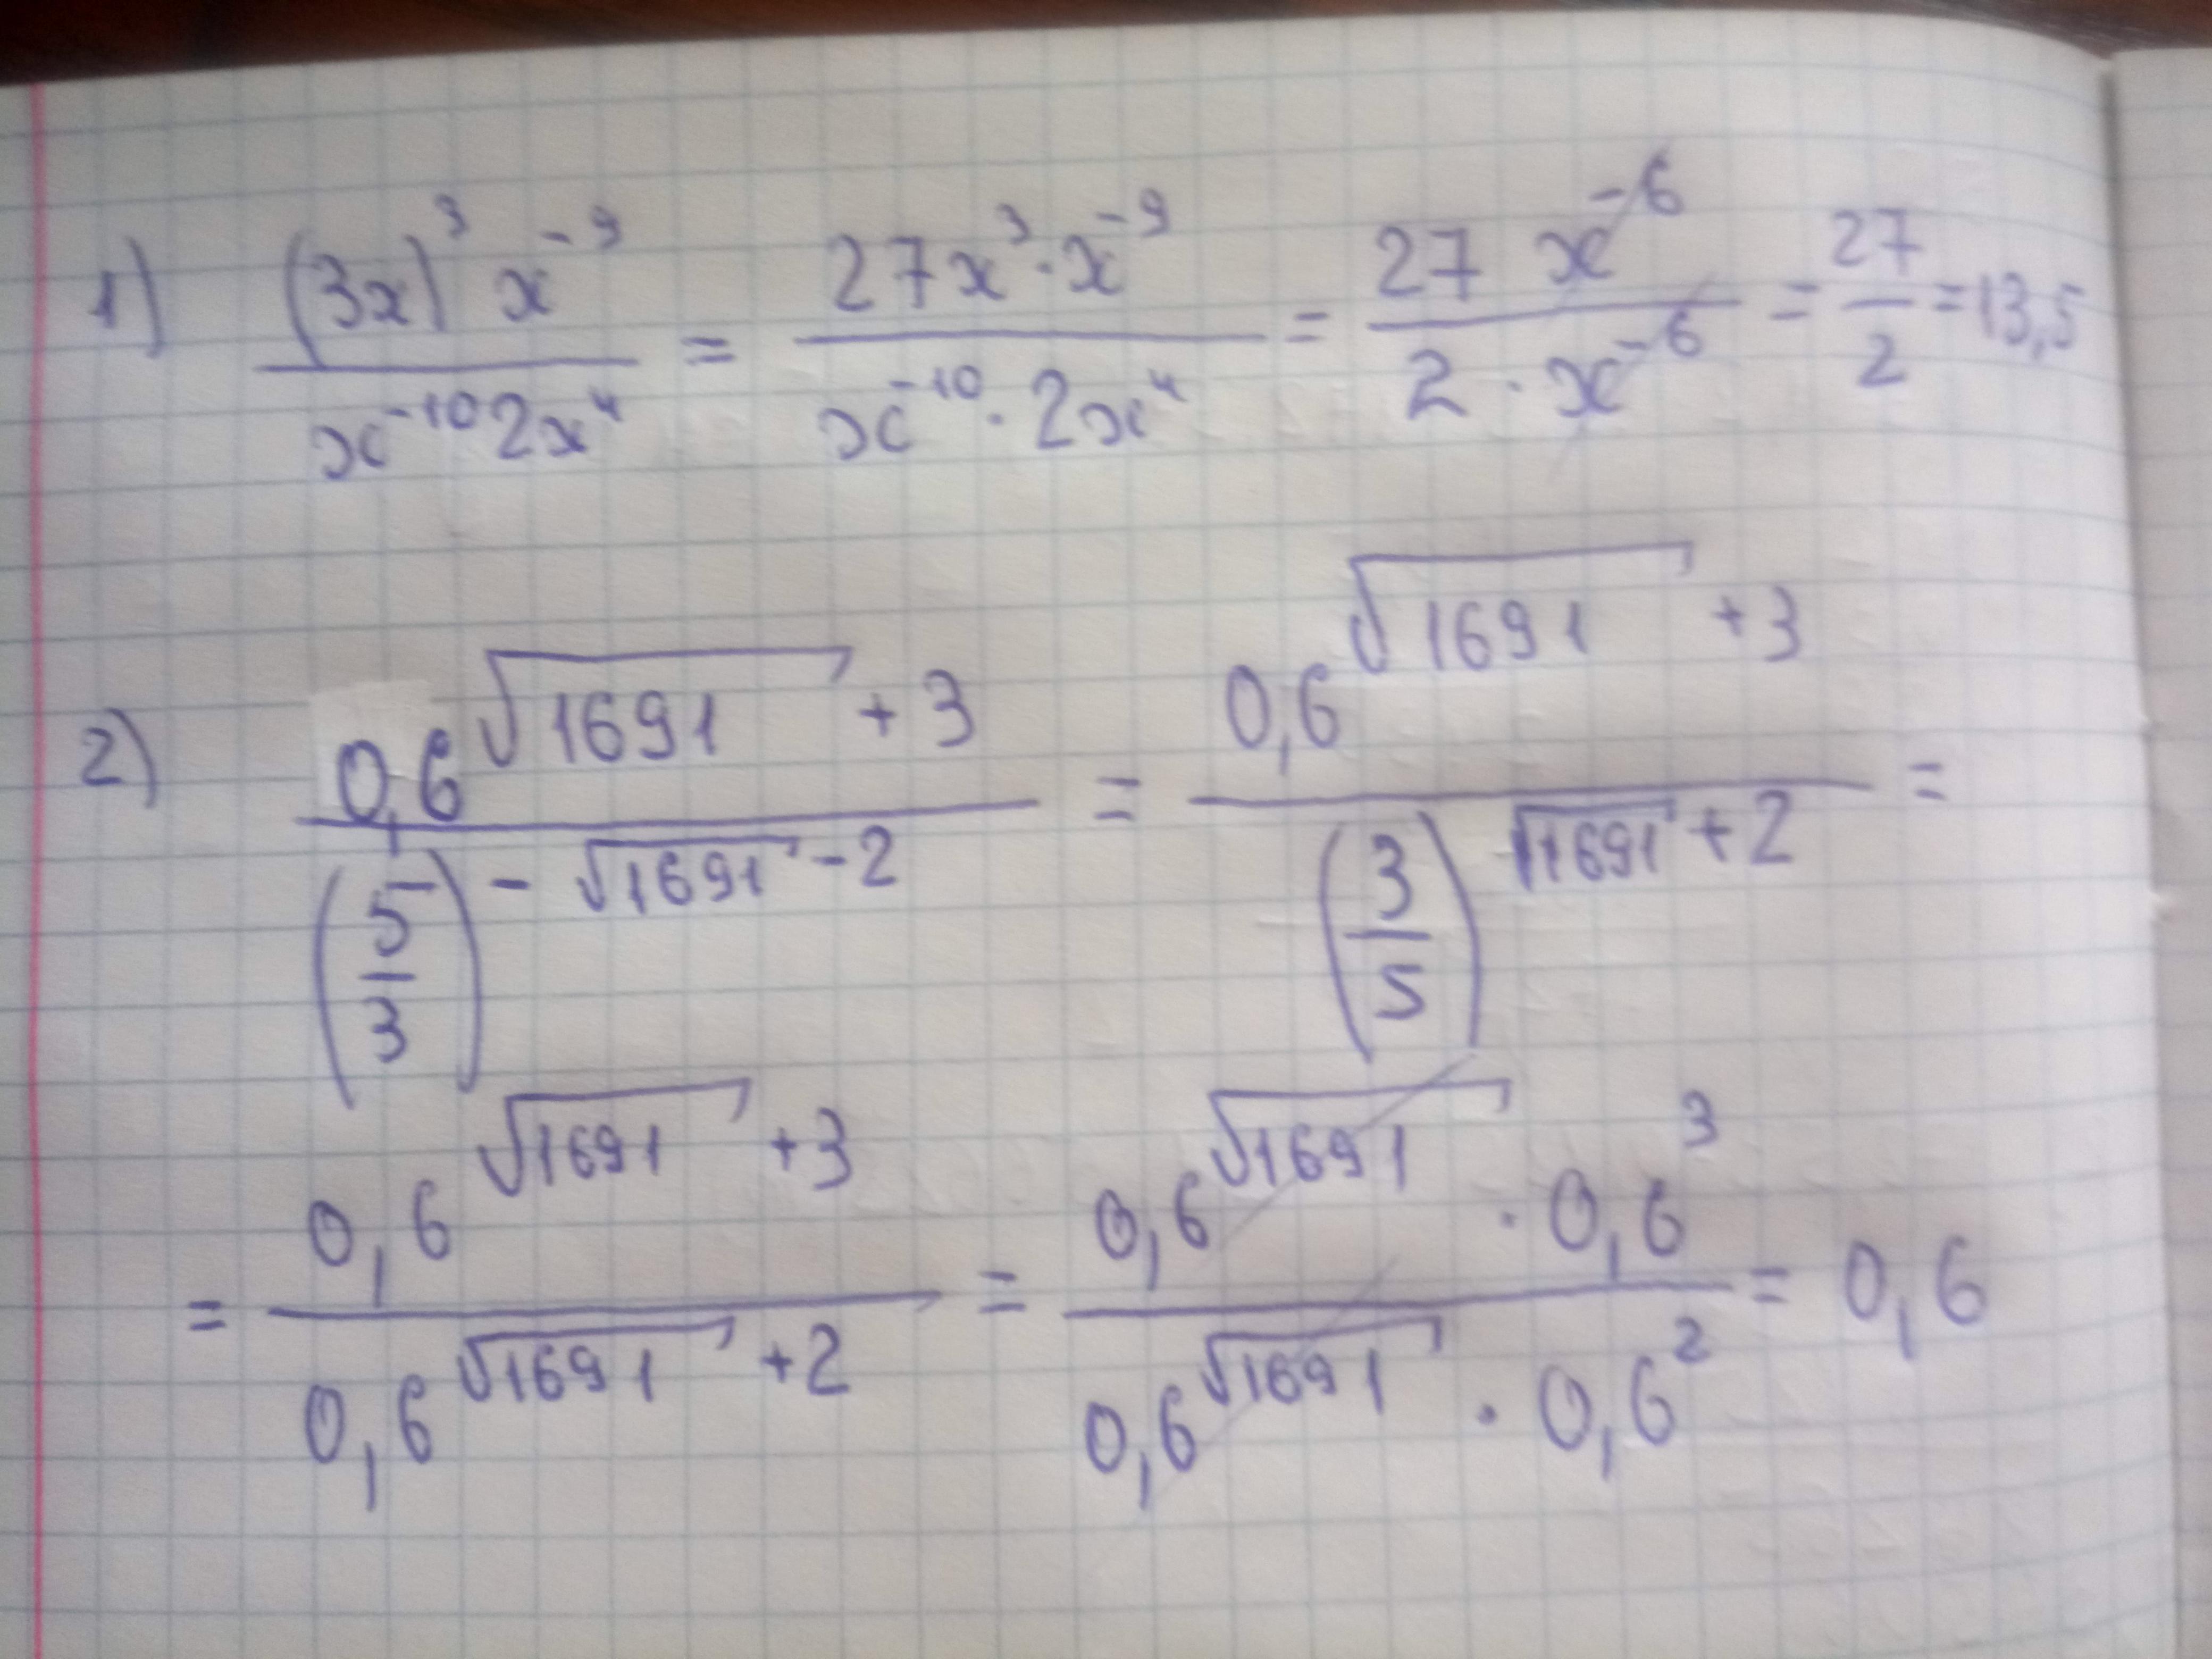 1) \frac{(3x)^3 x^{-9}}{x^{-10} 2x^4} = \frac{27x^3 \cdot x^{-9}}{x^{-10} \cdot 2x^4} = \frac{27 x^{-6}}{2 \cdot x^{-6}} = \frac{27}{2} = 13,5
2) \frac{0,6^{\sqrt{1691} + 3}}{\left(\frac{5}{3}\right)^{-\sqrt{1691} - 2}} = \frac{0,6^{\sqrt{1691} + 3}}{\left(\frac{3}{5}\right)^{\sqrt{1691} + 2}} =
= \frac{0,6^{\sqrt{1691} + 3}}{0,6^{\sqrt{1691} + 2}} = \frac{0,6^{\sqrt{1691}} \cdot 0,6^3}{0,6^{\sqrt{1691}} \cdot 0,6^2} = 0,6